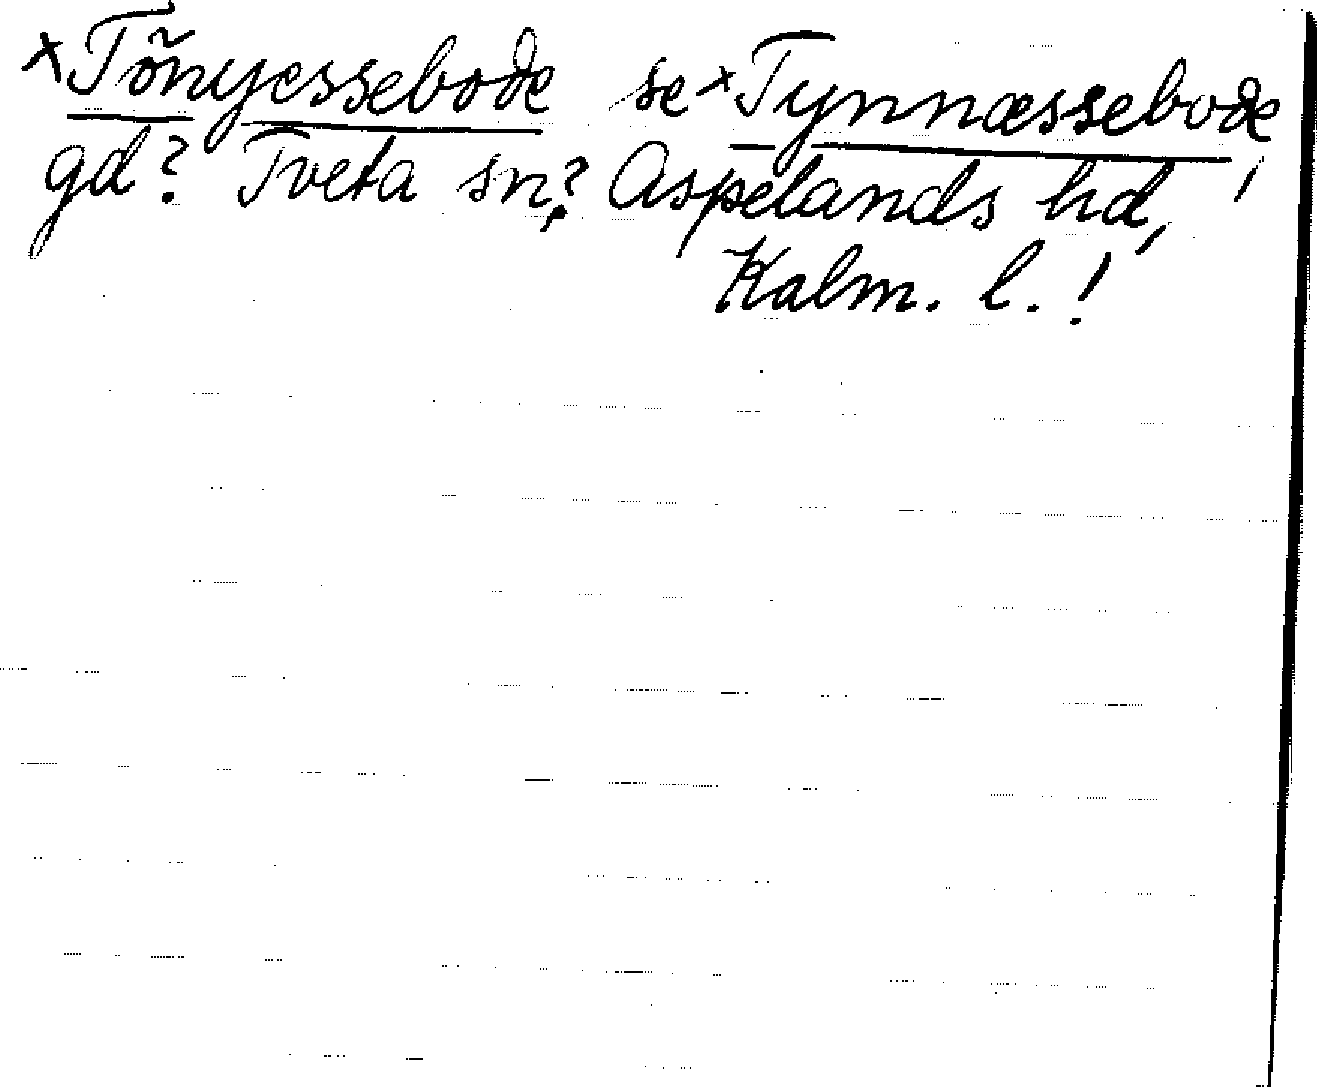 ×Tõnyessebode se ×Tynnæssebode,
gd? Tveta sn? Aspelands hd,
Kalm. l. !